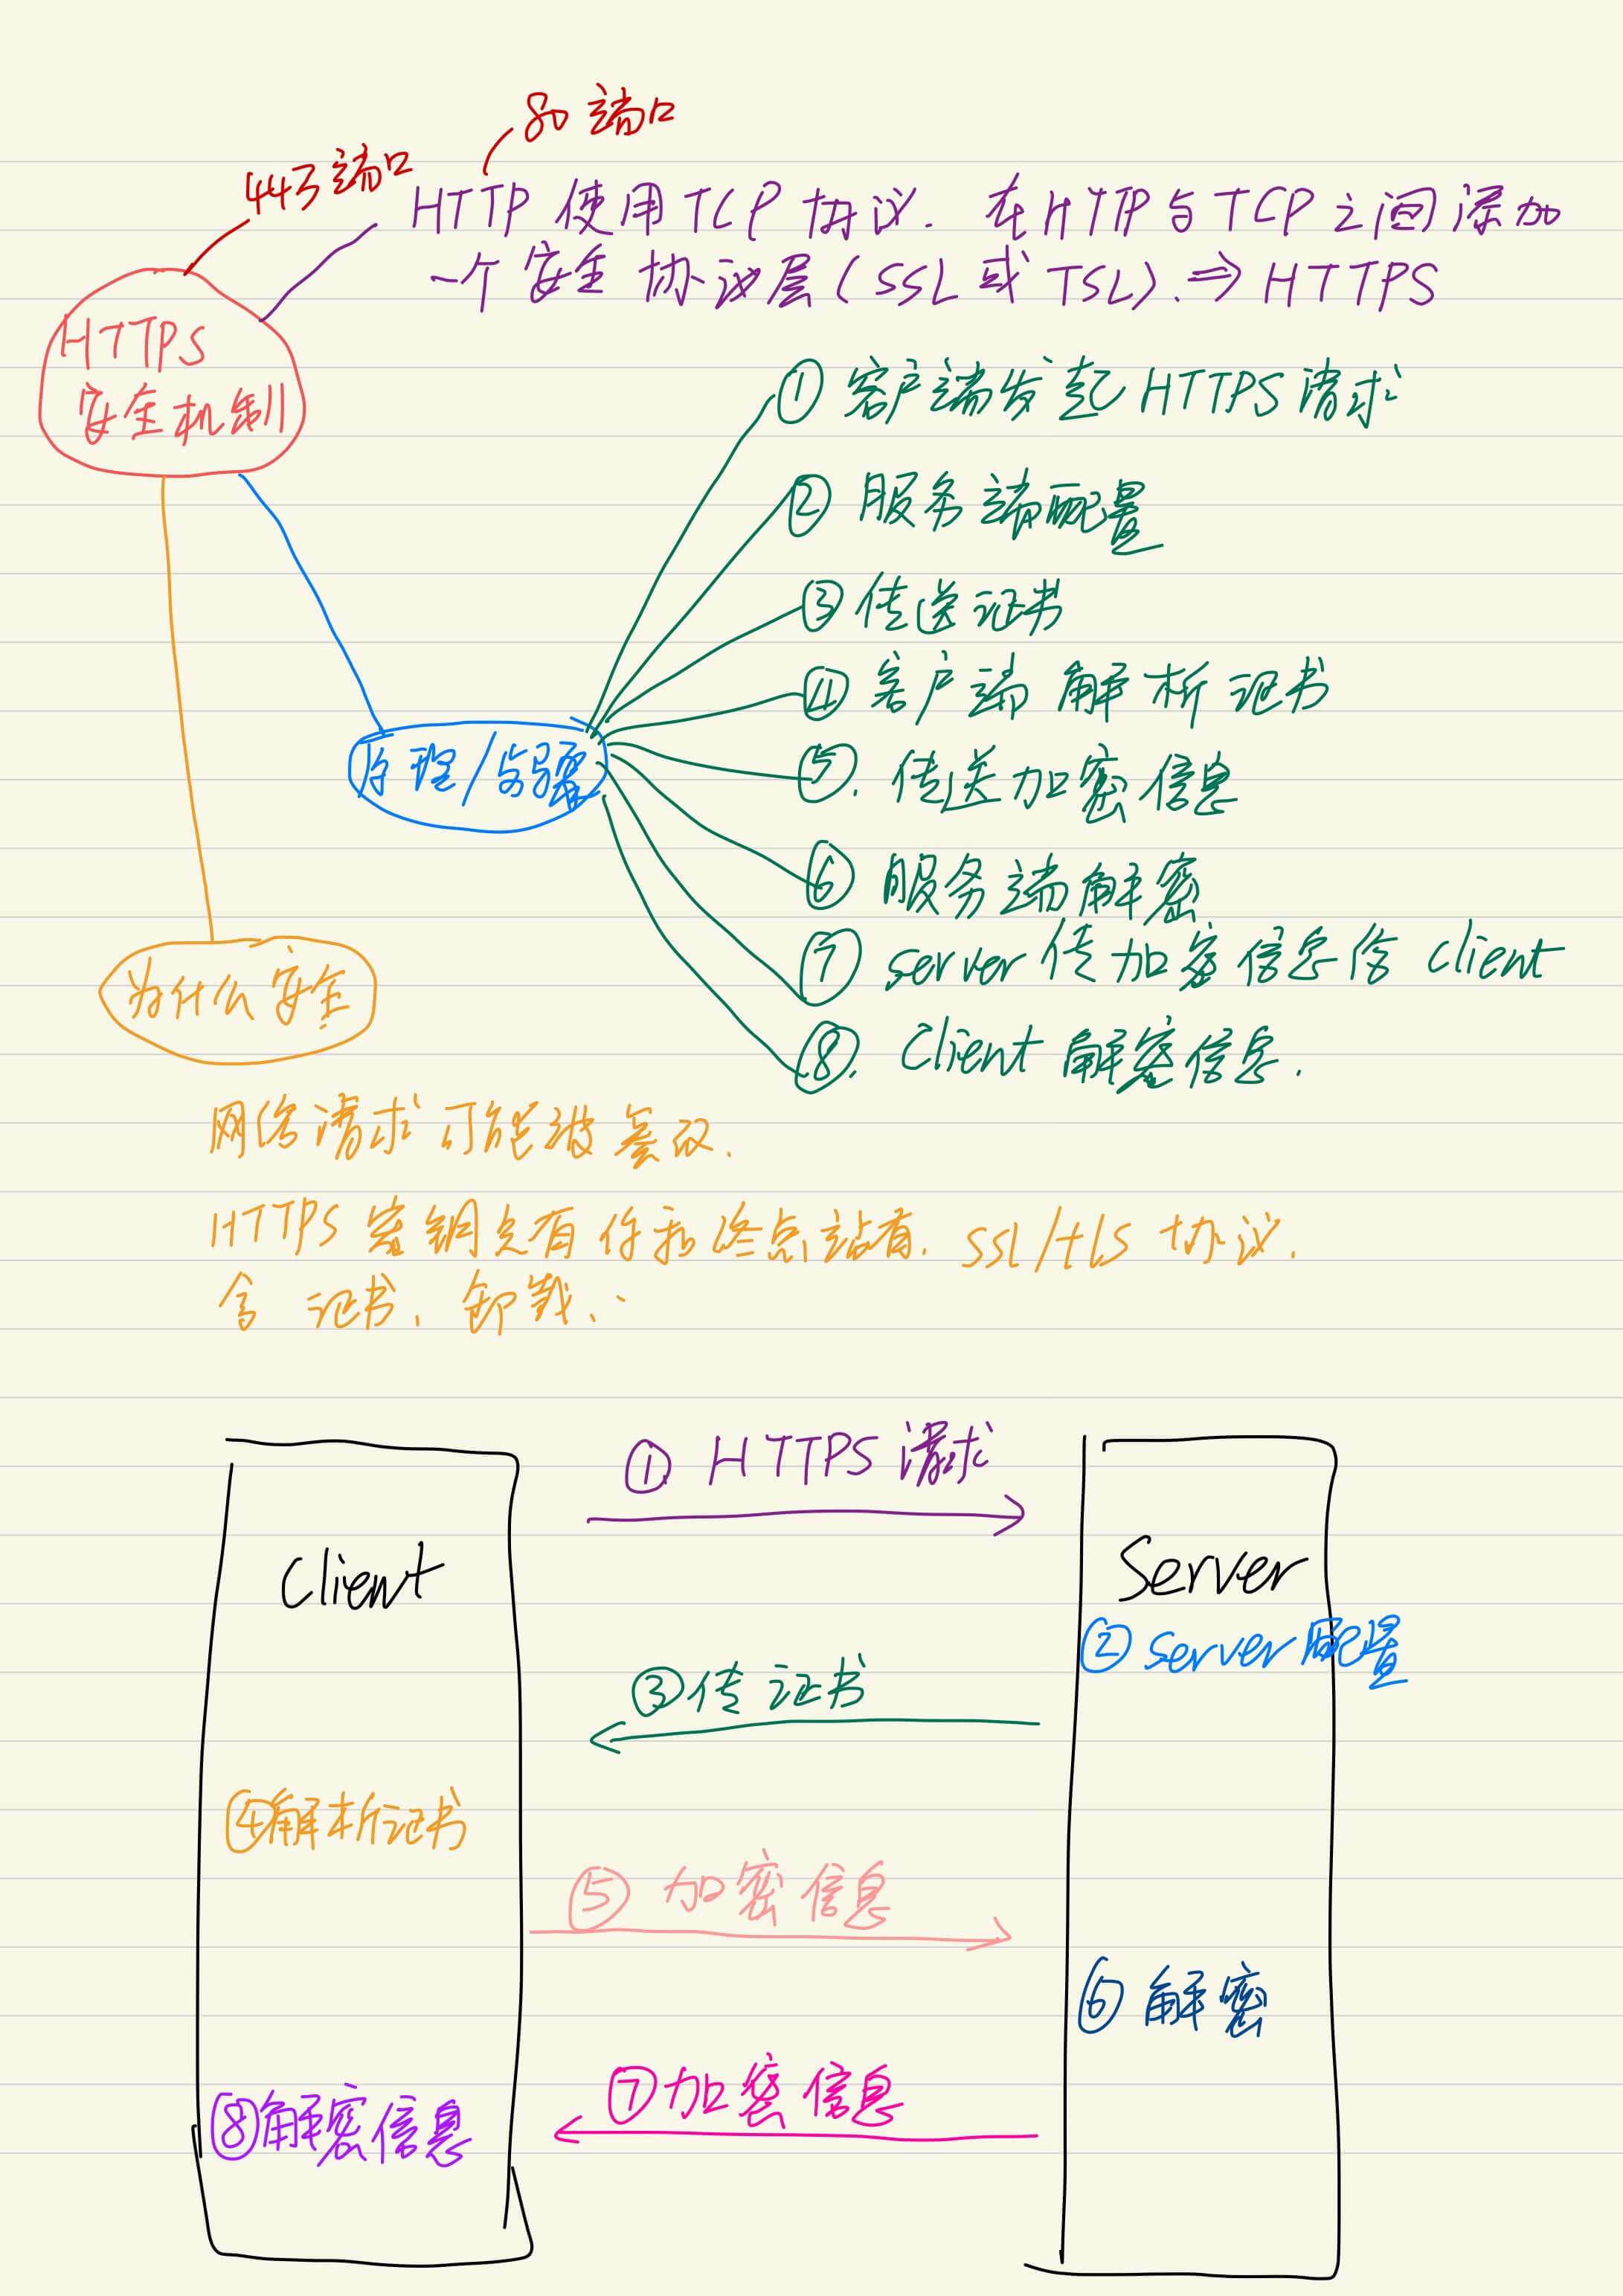 80 端口
443端口
HTTP 使用TCP协议. 在HTTP与TCP之间添加
一个安全协议层(SSL或TSL).⇒HTTPS
HTTPS
安全机制
① 客户端发起HTTPS请求
② 服务端配置
③传送证书
④客户端解析证书
⑤. 传送加密信息
原理/步骤
⑥ 服务端解密
⑦ server传加密信息给client
⑧. Client解密信息.
为什么安全
网络请求可能被篡改.
HTTPS密钥只有你和终点站有. SSL/tls协议.
含 证书、卸载、
① HTTPS 请求
Client
Server
② server配置
③传 证书
④解析证书
⑤ 加密信息
⑥ 解密
⑦加密信息
⑧解密信息